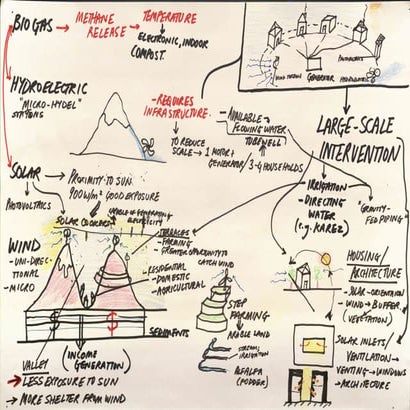 BIOGAS
METHANE
RELEASE
TEMPERATURE
ELECTRONIC, INDOOR
COMPOST.
HYDROELECTRIC
"MICRO-HYDEL"
STATIONS
- REQUIRES
INFRASTRUCTURE.
TO REDUCE
SCALE → 1 MOTOR +
GENERATOR / 3-4 HOUSEHOLDS
- AVAILABLE
FLOWING WATER
GENERATOR
LARGE-SCALE
INTERVENTION
SOLAR
PHOTOVOLTAICS
PROXIMITY TO SUN.
900W/m² GOOD EXPOSURE
IRRIGATION
- DIRECTING
WATER
(e.g. KAREZ)
"GRAVITY-
FED PIPING"
WIND
- UNI-DIREC-
TIONAL
- MICRO
TERRACES
- FARMING
- GREATER OPPORTUNITY TO
CATCH WIND
- RESIDENTIAL
- DOMESTIC
- AGRICULTURAL
STEP
FARMING
ARABLE LAND
STREAM,
IRRIGATION
ALFALFA
(FODDER)
HOUSING/
ARCHITECTURE
- SOLAR-ORIENTATION
- WIND → BUFFER
(VEGETATION)
SOLAR INLETS/
VENTILATION
VENTING → WINDOWS
→ ARCHITECTURE
$ $
SEDIMENTS
(INCOME
GENERATION)
VALLEY
→ LESS EXPOSURE TO SUN
→ MORE SHELTER FROM WIND